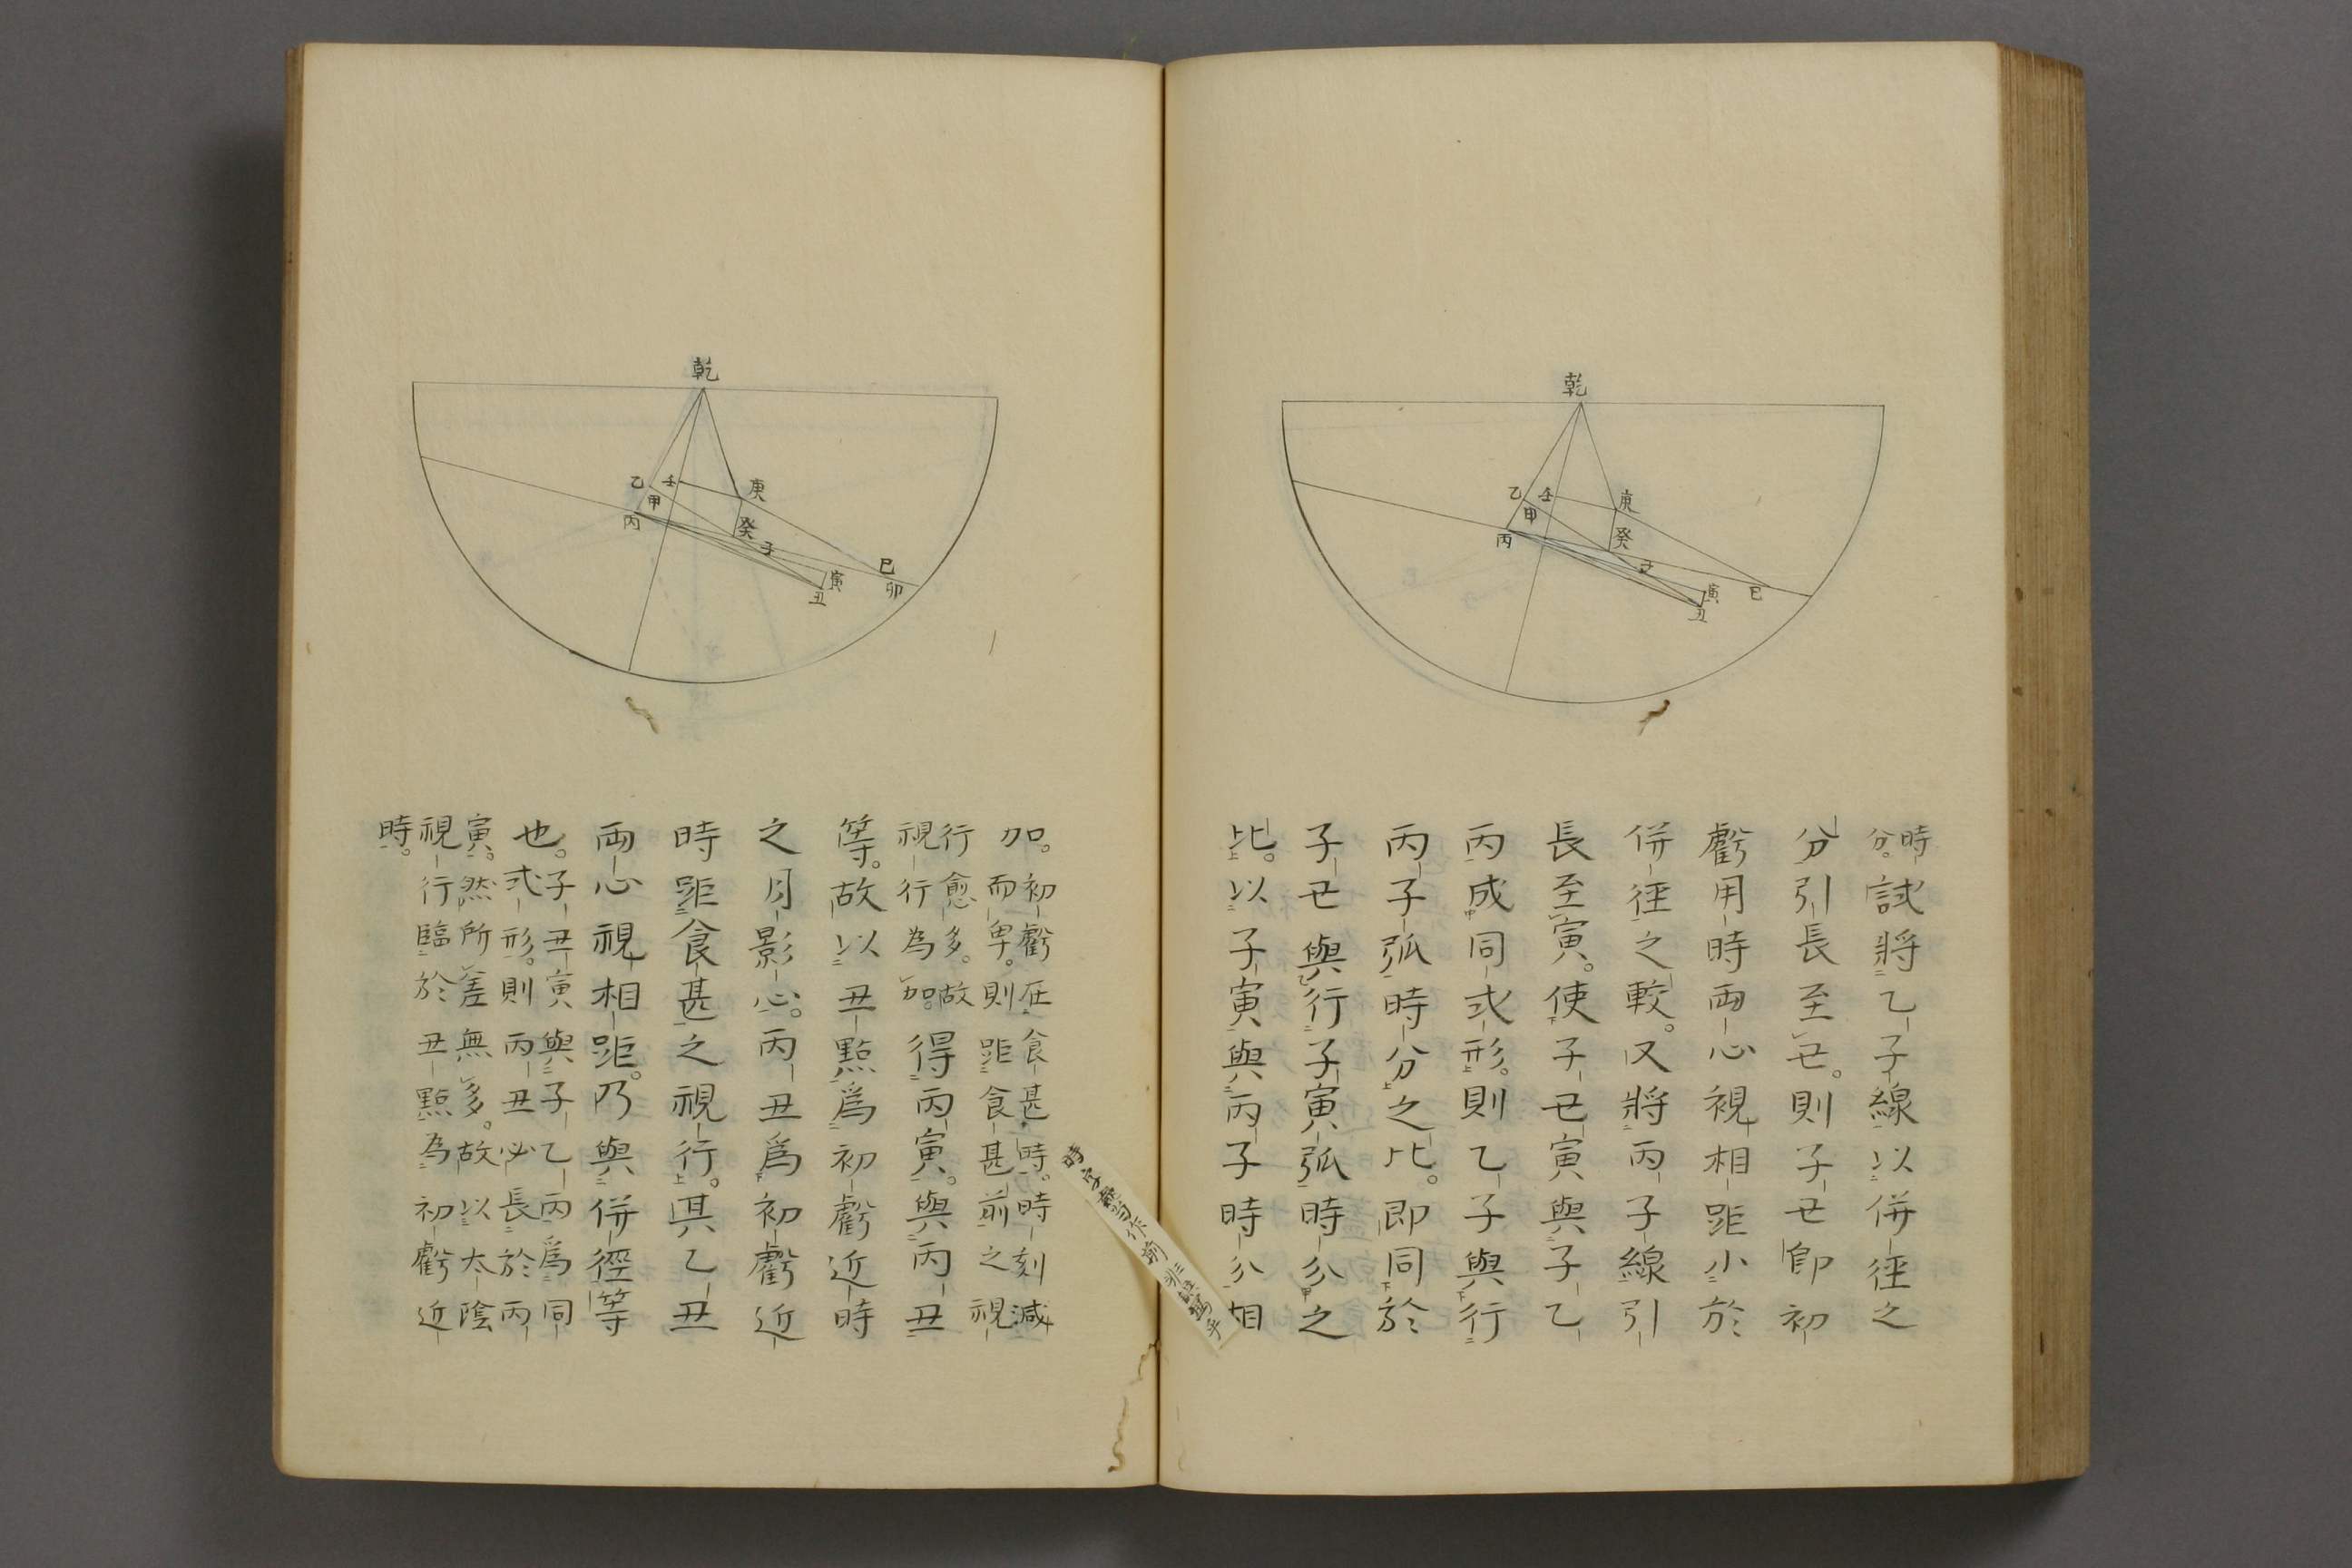 乾
乙
壬
庚
甲
丙
癸
子
寅
丑
巳
時
分。試將乙子線以併徑之
分引長至丑。則子丑卽初
虧用時兩心視相距小於
併徑之較。又將丙子線引
長至寅。使子丑寅與子乙
丙成同式形。則乙子與行
丙子弧時分之比。即同於
子丑與行子寅弧時分之
比。以子寅與丙子時分相
乾
乙
壬
庚
甲
丙
癸
子
寅
丑
巳
卯
加。初虧在食甚時。時刻減
而卑。則距食甚前之視
行愈多。故
視行為加。得丙寅。與丙丑
等。故以丑點爲初虧近時
之月影心。丙丑爲初虧近
時距食甚之視行。其乙丑
兩心視相距。乃與併徑等
也。子丑寅與子乙丙爲同
式形。則丙丑必長於丙
寅。然所差無多。故以太陰
視行臨於丑點為初虧近
時。